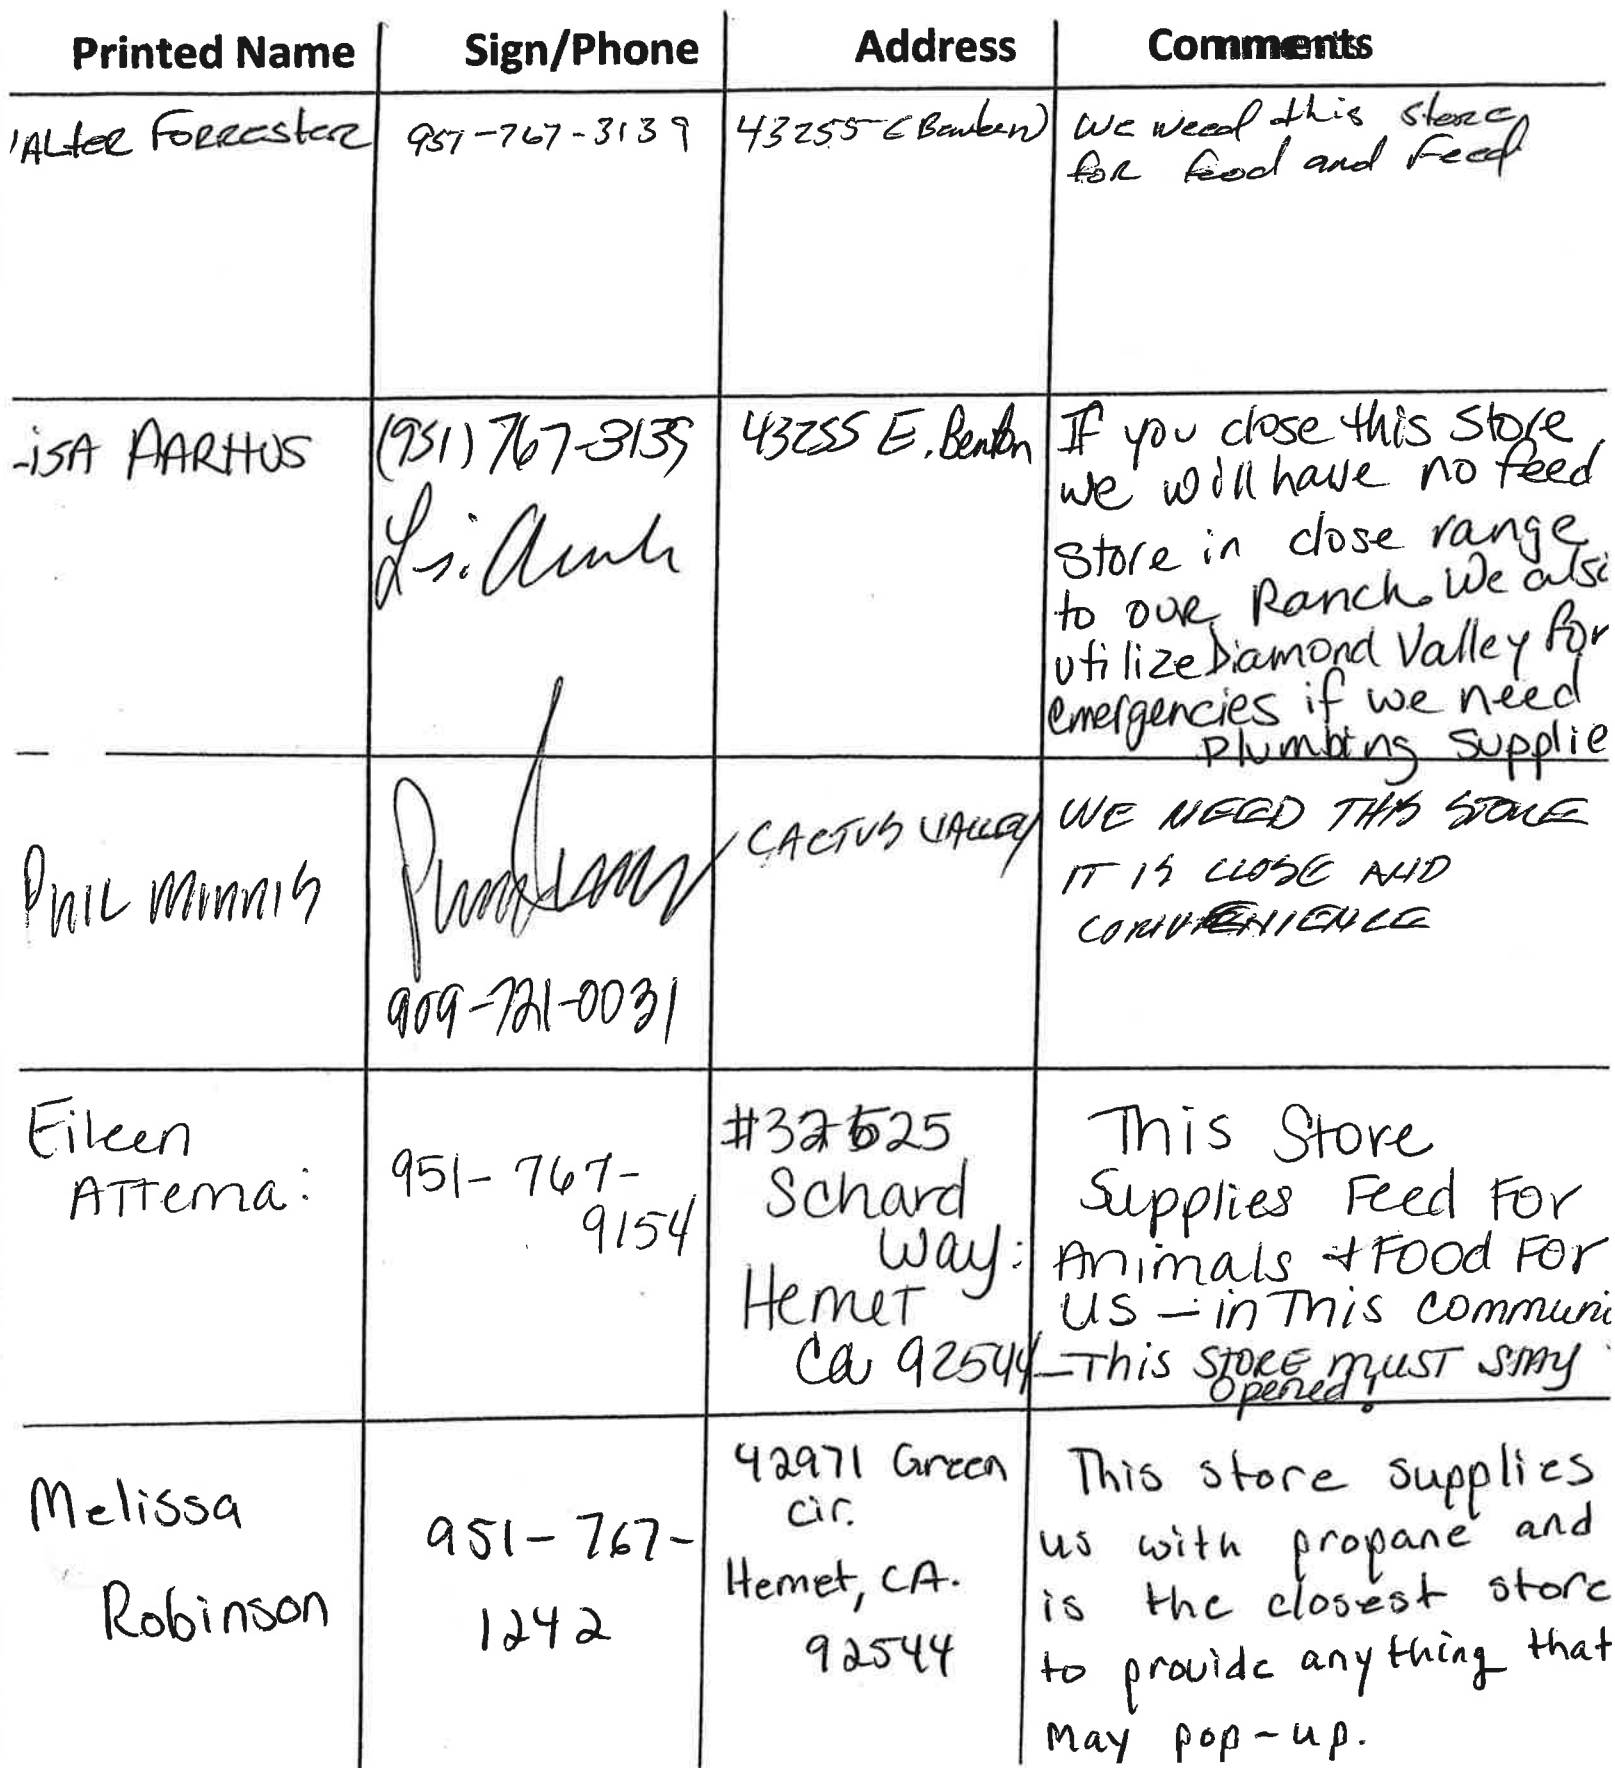 Printed Name Sign/Phone Address Comments
ALter FORRESTER 951-767-3139 43255 E We need this store
for food and feed
isA AARHUS (951) 767-3139 43255 E. Benton If you close this Store
we will have no feed
Store in close range
to our Ranch. We also
utilize Diamond Valley for
emergencies if we need
plumbing Supplie
PHIL MINNIS CACTUS VALLEY WE NEED THIS STORE
IT IS CLOSE AND
CONVENIENCE
909-721-0031
Eileen
ATTema: 951-767-
9154 #32525
Schard
Way:
Hemet
Ca 92544 This Store
Supplies Feed For
Animals & Food For
US — in This communi
— This STORE MUST STAY
opened!
Melissa
Robinson 951-767-
1242 42971 Green
cir.
Hemet, CA.
92544 This store supplies
us with propane and
is the closest store
to provide anything that
may pop-up.